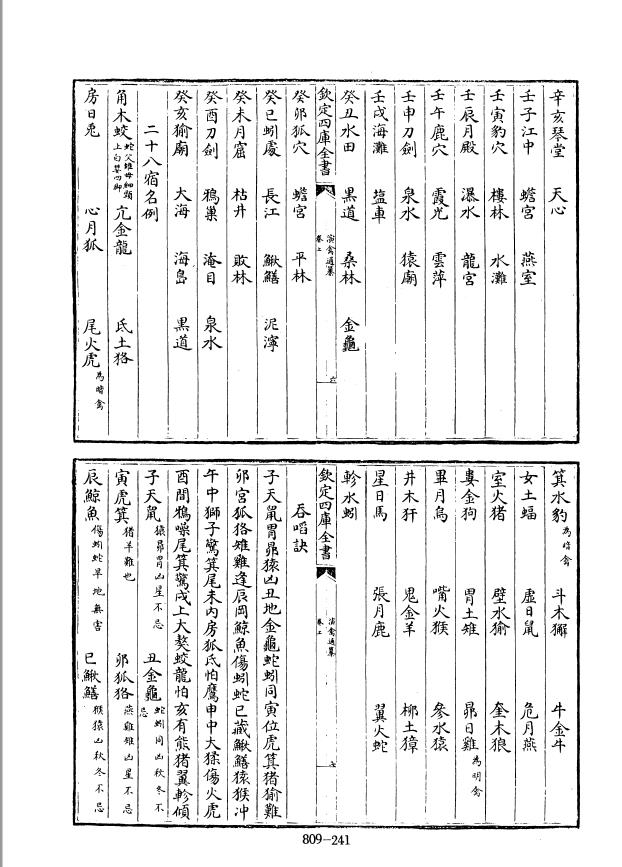 辛亥琴堂 天心
壬子江中 蟾宮 燕室
壬寅豹穴 樓林 水灘
壬辰月殿 瀑水 龍宮
壬午鹿穴 霞光 雲萍
壬申刀劍 泉水 猿廟
壬戌海灘 塩車
癸丑水田 黑道 桑林 金龜
欽定四庫全書 卷上 演禽通纂 六
癸卯狐穴 蟾宮 平林
癸巳蚓處 長江 鰍鱔 泥濘
癸未月窟 枯井 敗林
癸酉刀劍 鴉巢 淹目 泉水
癸亥㺄廟 大海 海島 黑道
二十八宿名例
角木蛟 蛇父雉母細頸上白嬰四脚 亢金龍 氐土狢
房日兎 心月狐 尾火虎 為暗禽
箕水豹 為暗禽 斗木獬 牛金牛
女土蝠 虛日鼠 危月燕
室火猪 壁水㺄 奎木狼
婁金狗 胃土雉 昴日雞 為明禽
畢月烏 嘴火猴 參水猿
井木犴 鬼金羊 柳土獐
星日馬 張月鹿 翼火蛇
軫水蚓
欽定四庫全書 卷上 演禽通纂 七
吞啗訣
子天鼠胃昴猿凶丑地金龜蛇蚓同寅位虎箕猪㺄難
卯宮狐狢雉雞逢辰岡鯨魚傷蚓蛇巳藏鰍鱔猿猴冲
午中獅子驚箕尾未内房狐氐怕鷹申中大猱傷火虎
酉間鴉噪尾箕驚戌上大獒蛟龍怕亥有熊猪翼軫傾
子天鼠 猿昴胃凶星不忌 丑金龜 蛇蚓同凶秋冬不忌
寅虎箕 猪羊難也 卯狐狢 燕雞雉凶星不忌
辰鯨魚 傷蚓蛇旱地無害 巳鰍鱔 猴猿凶秋冬不忌
809-241